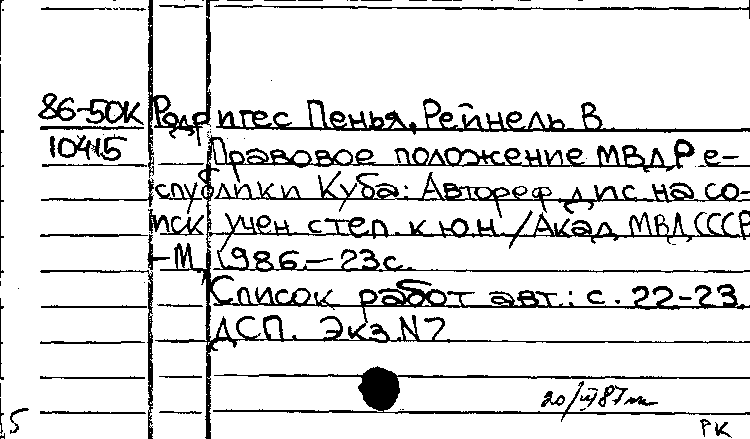 86-50К Родригес Пенья, Рейнель В.
10415 Правовое положение МВД Ре-
спублики Куба: Автореф. дис. на со-
иск. учен. степ. к.ю.н. / Акад. МВД СССР
-М., 1986.-23с.
Список работ авт.: с. 22-23.
ДСП. Экз. N7
20/VII 87
5
РК